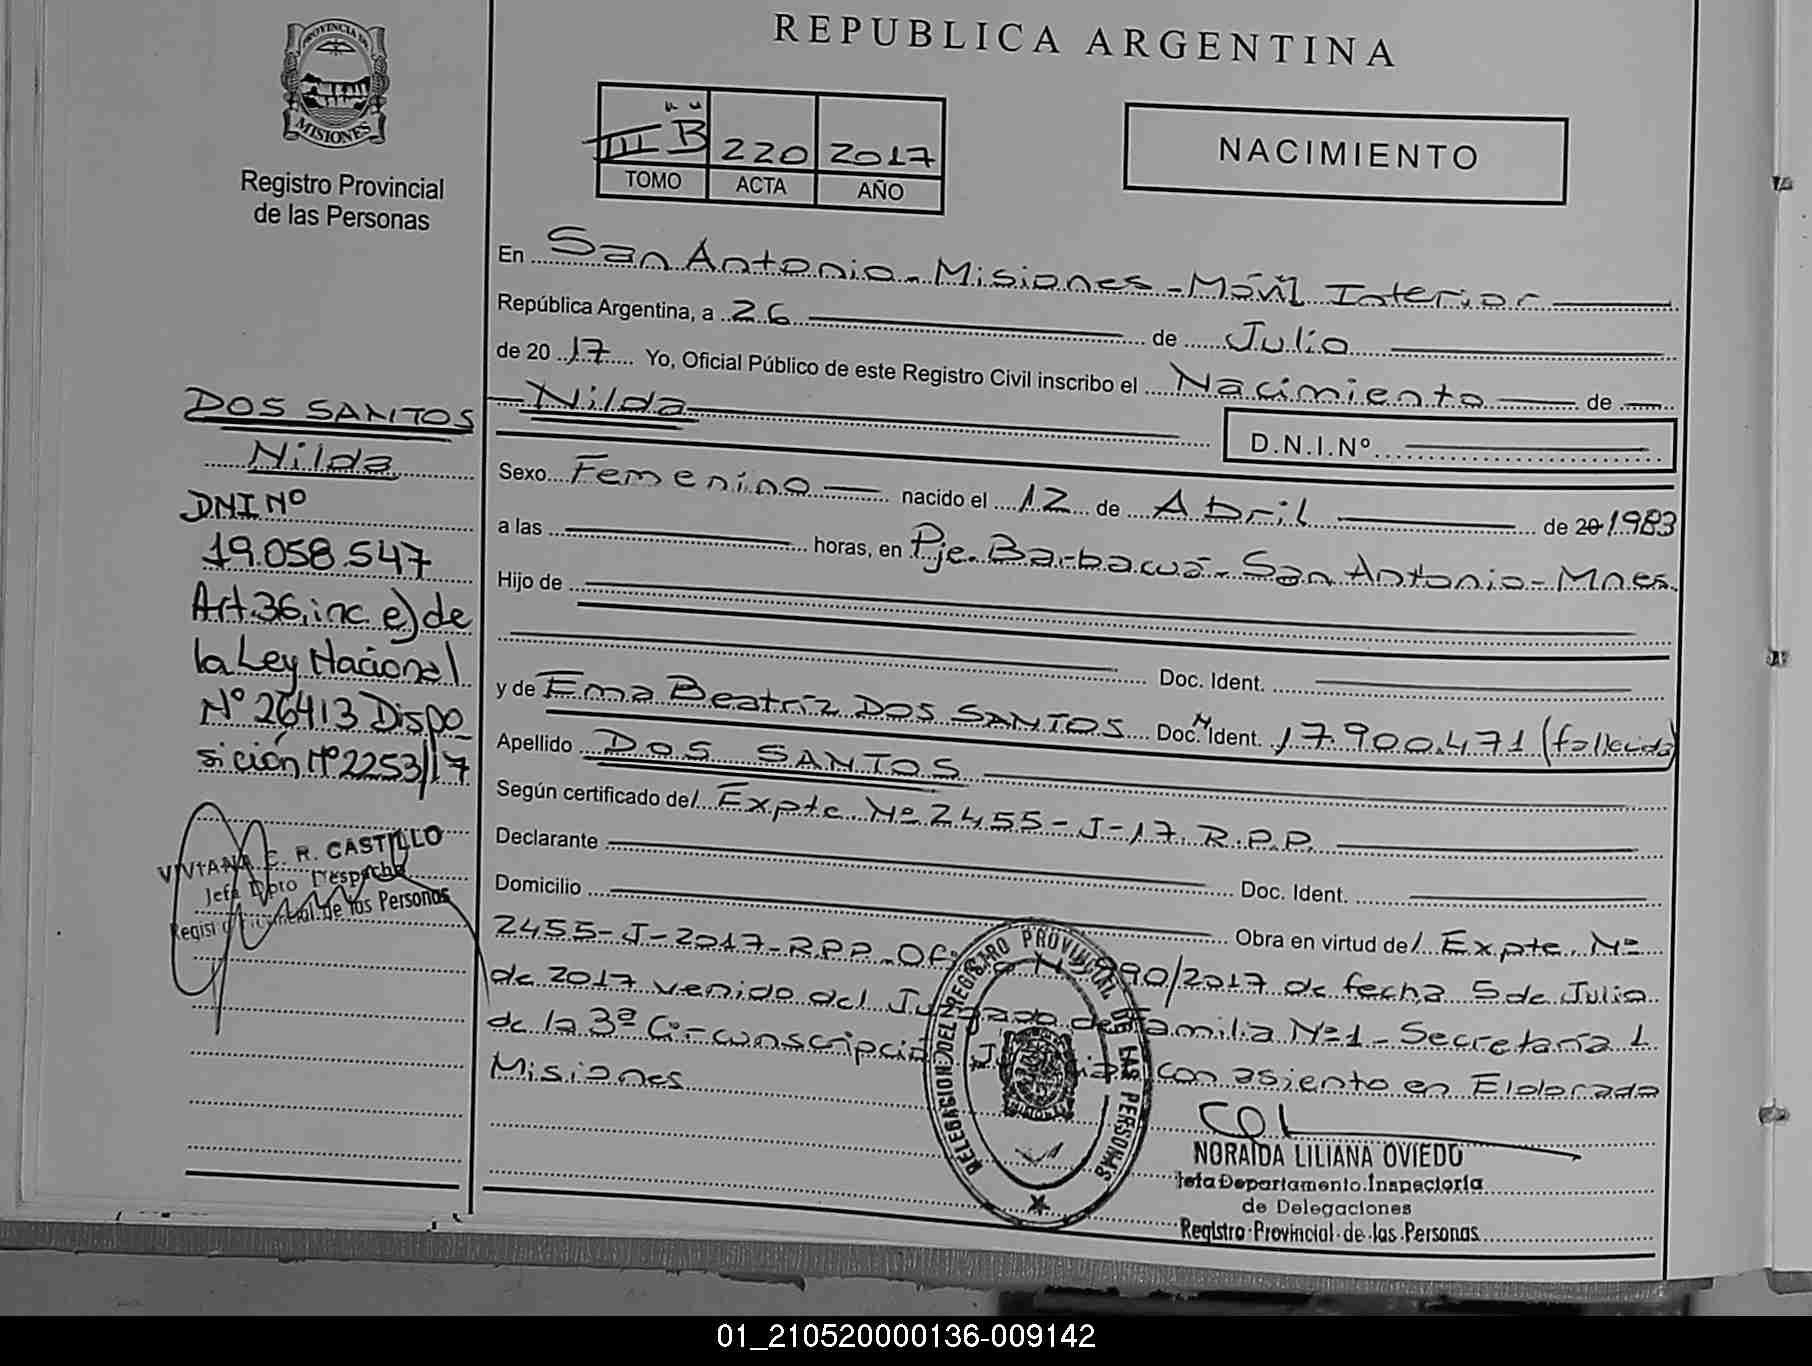 REPUBLICA ARGENTINA
PROVINCIA DE
MISIONES
Registro Provincial
de las Personas
III "B" 220 2017
TOMO ACTA AÑO
NACIMIENTO
En San Antonio - Misiones - Móvil Interior
República Argentina, a 26 de Julio
de 20 17 Yo, Oficial Público de este Registro Civil inscribo el Nacimiento de
Nilda
D.N.I.Nº
Sexo Femenino nacido el 12 de Abril de 20 1983
a las horas, en Pje. Barbacuá - San Antonio - Mnes.
Hijo de
Doc. Ident.
y de Ema Beatríz DOS SANTOS Doc. Ident. Nº 17.900.471 (fallecida)
Apellido DOS SANTOS
Según certificado del Expte. Nº 2455-J-17. R.P.P.
Declarante Doc. Ident.
Domicilio Obra en virtud del Expte. Nº
2455-J-2017-R.P.P. 990/2017 de fecha 5 de Julio
de 2017 venido del Juzgado de Familia Nº 1 - Secretaría 1
de la 3ª Circunscripción con asiento en Eldorado
Misiones
DOS SANTOS
Nilda
DNI Nº
19.058.547
Art. 36, inc. e) de
la Ley Nacional
Nº 26413 Dispo_
sición Nº 2253/17
VIVIANA C. R. CASTILLO
Jefa Dpto Despacho
Registro Provincial de las Personas
DELEGACION DEL REGISTRO PROVINCIAL DE LAS PERSONAS
NORAIDA LILIANA OVIEDO
Jefa Departamento Inspectoría
de Delegaciones
Registro Provincial de las Personas
01_210520000136-009142